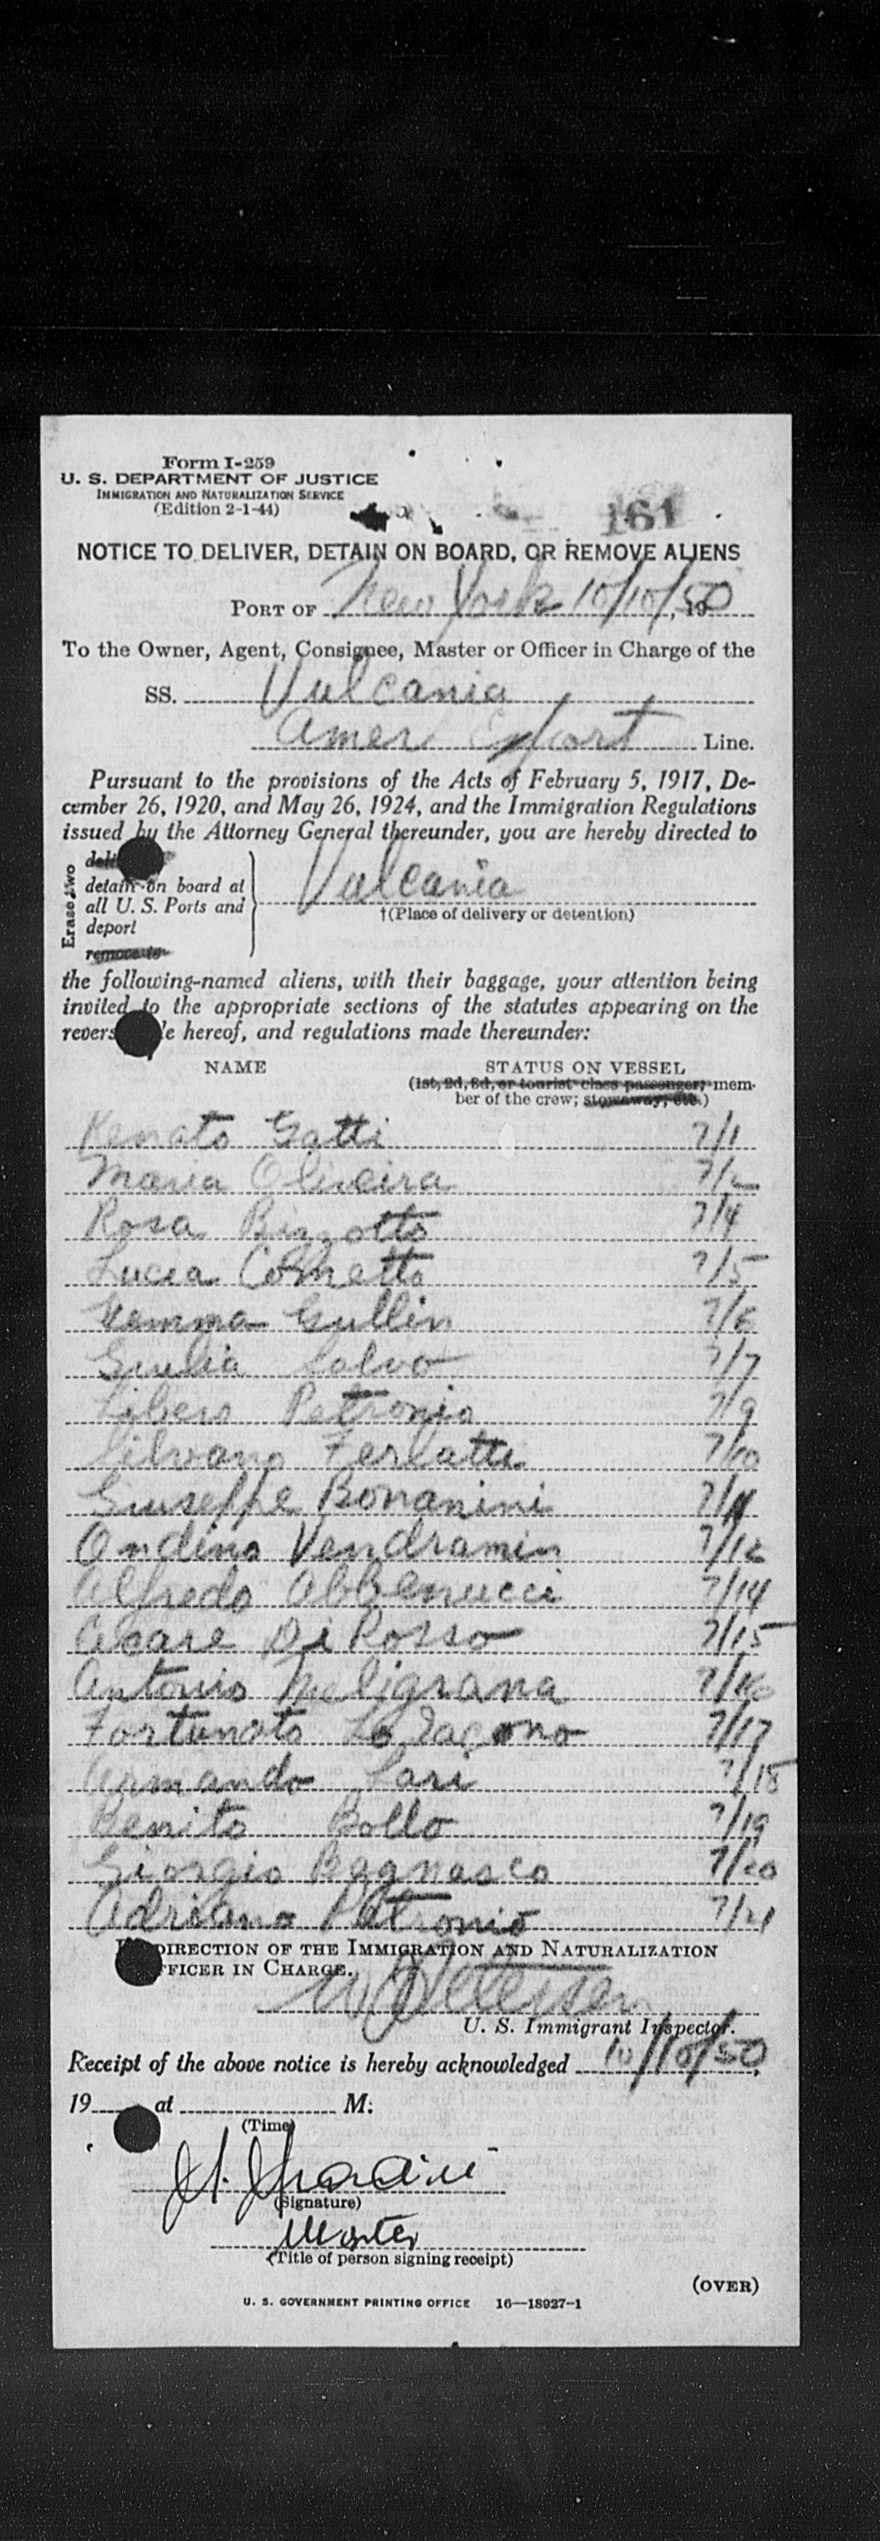 Form I-259
U. S. DEPARTMENT OF JUSTICE
IMMIGRATION AND NATURALIZATION SERVICE
(Edition 2-1-44)
161
NOTICE TO DELIVER, DETAIN ON BOARD, OR REMOVE ALIENS
PORT OF New York 10/10/50, 19
To the Owner, Agent, Consignee, Master or Officer in Charge of the
SS. Vulcania
Amer Export Line.
Pursuant to the provisions of the Acts of February 5, 1917, De-
cember 26, 1920, and May 26, 1924, and the Immigration Regulations
issued by the Attorney General thereunder, you are hereby directed to
Erase two
detain on board at
all U. S. Ports and
deport
remove to
Vulcania
†(Place of delivery or detention)
the following-named aliens, with their baggage, your attention being
invited to the appropriate sections of the statutes appearing on the
hereof, and regulations made thereunder:
NAME STATUS ON VESSEL
(1st, 2d, 3d, or tourist class passenger; mem-
ber of the crew; stowaway, etc.)
Renato Gatti 7/1
Maria Oliveira 7/2
Rosa Bizzotto 7/4
Lucia Cornetto 7/5
Gemma Gullin 7/6
Giulia Salvo 7/7
Libero Petronio 7/9
Silvano Ferlatti 7/10
Giuseppe Bonanini 7/11
Ondino Vendramin 7/12
Alfredo Abbenucci 7/14
Di Rosso 7/15
Antonio Meligrana 7/16
Fortunato Lo Iacono 7/17
Armando Lari 7/18
Benito Bollo 7/19
Giorgio Bagnasco 7/20
Adriano Petronio 7/21
DIRECTION OF THE IMMIGRATION AND NATURALIZATION
OFFICER IN CHARGE.
U. S. Immigrant Inspector.
Receipt of the above notice is hereby acknowledged 10/10/50,
19 at M.
(Time)
(Signature)
Master
(Title of person signing receipt)
(OVER)
U. S. GOVERNMENT PRINTING OFFICE 16—18927-1